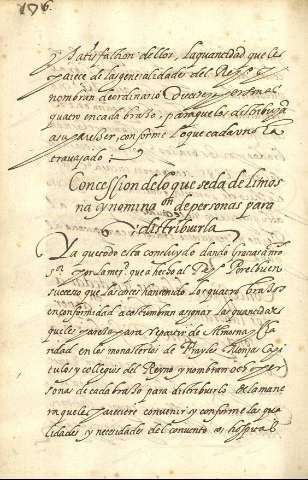 176.
y satisfaction dellos, la quantidad que les
pareze de las generalidades del Reyno y
nombran de ordinario personas
quatro en cada braço, para que los distribuyā
a su plaser, conforme lo que cada uno ha
travajado:
Concession de lo que se da de limos
na y nominaon de personas para
distribuirla
Ya que todo esta concluydo dando Gracias a nro
sor por la mrd que a hecho al Reyno Por el buen
successo que las cortes han tenido los quatro braços
en conformidad acostumbran asignar las quantidades
que les pareze para repartir de limosna y Cha
ridad en los monasterios de Frayles Monjas Capi
tulos y collegios del Reyno y nombran ocho per
sonas de cada braço para distribuirlo de la mane
ra que les pareciere convenir y conforme las qua
lidades y necesidades del convento o hospital